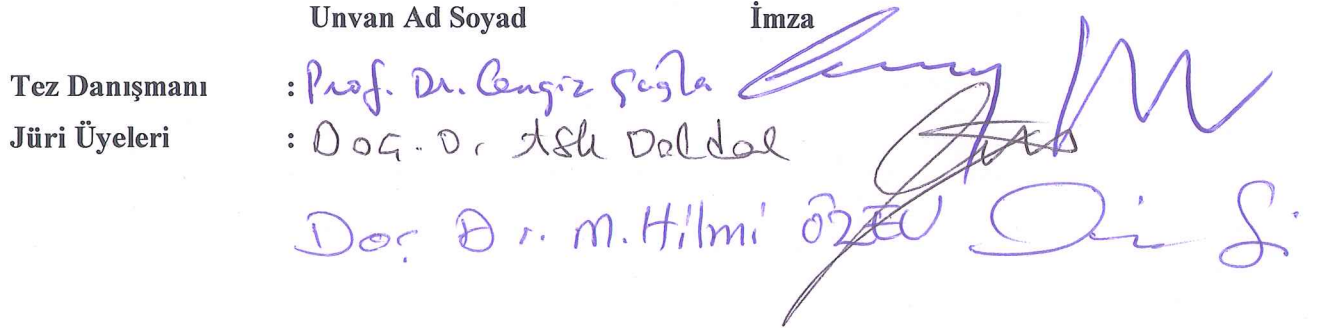 Unvan Ad Soyad İmza
Tez Danışmanı : Prof. Dr. Cengiz Çağla
Jüri Üyeleri : Doç. D. Aslı Daldal
Doç. Dr. M. Hilmi ÖZEV